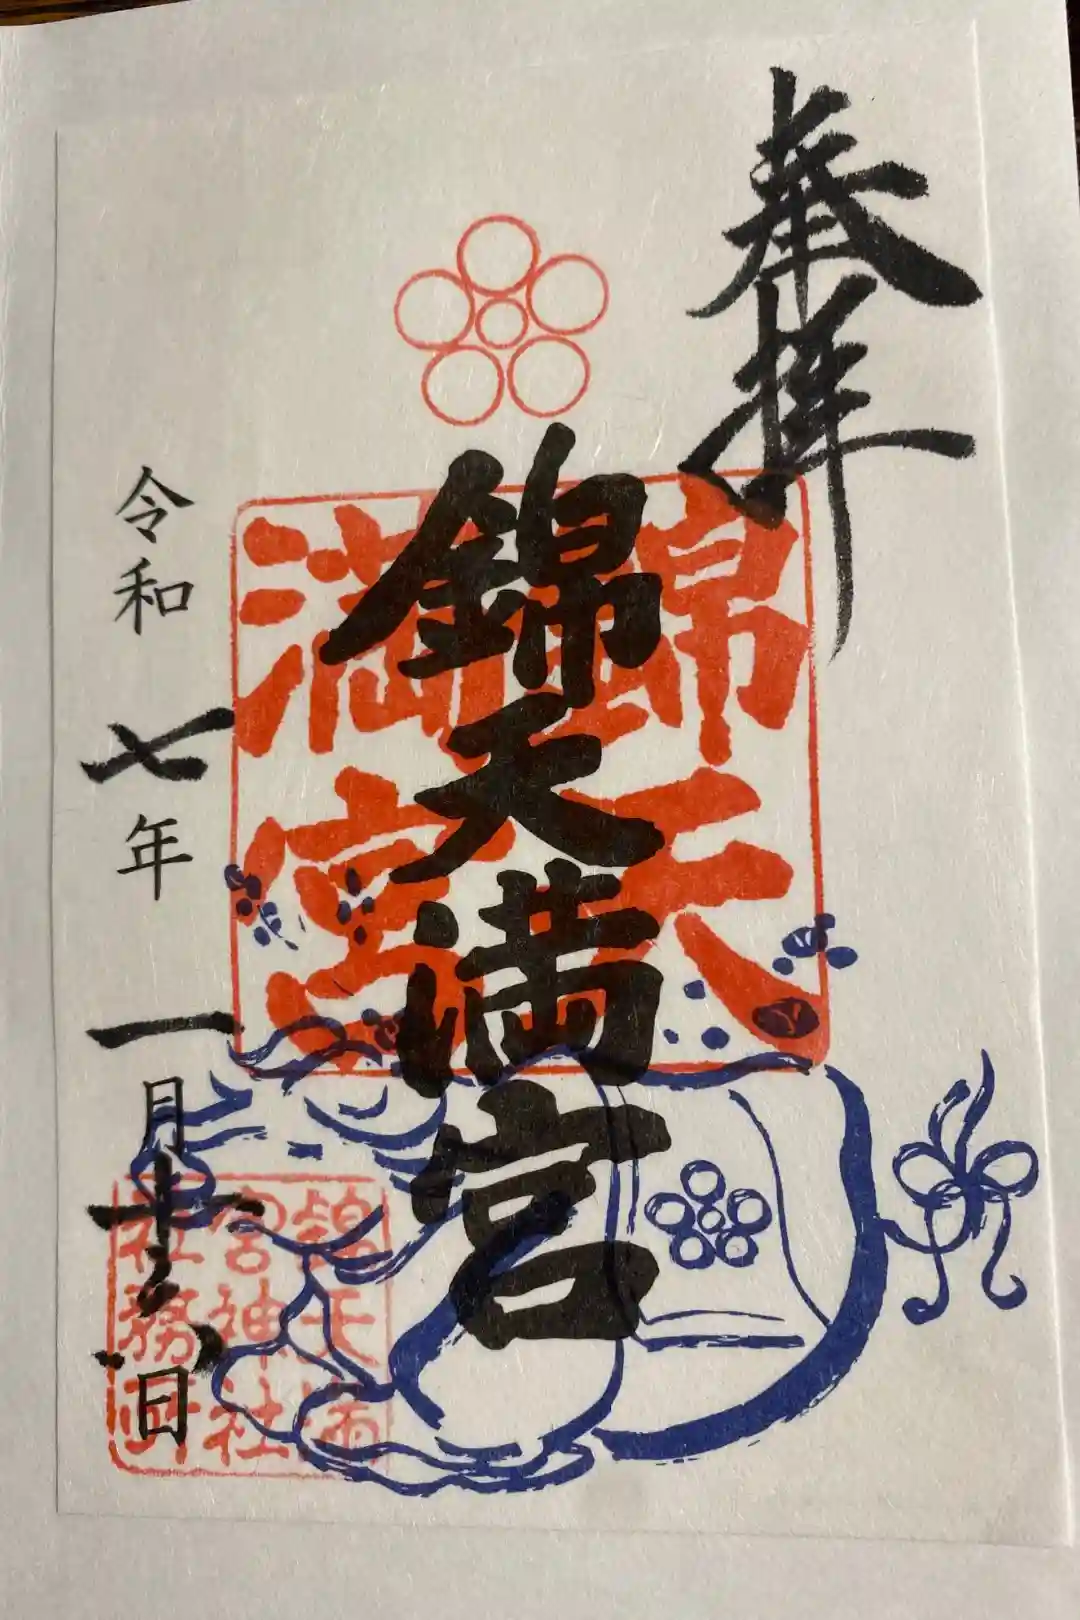 奉拝
錦天満宮
錦天
満宮
令和七年一月十六日
錦天満
宮神社
社務所